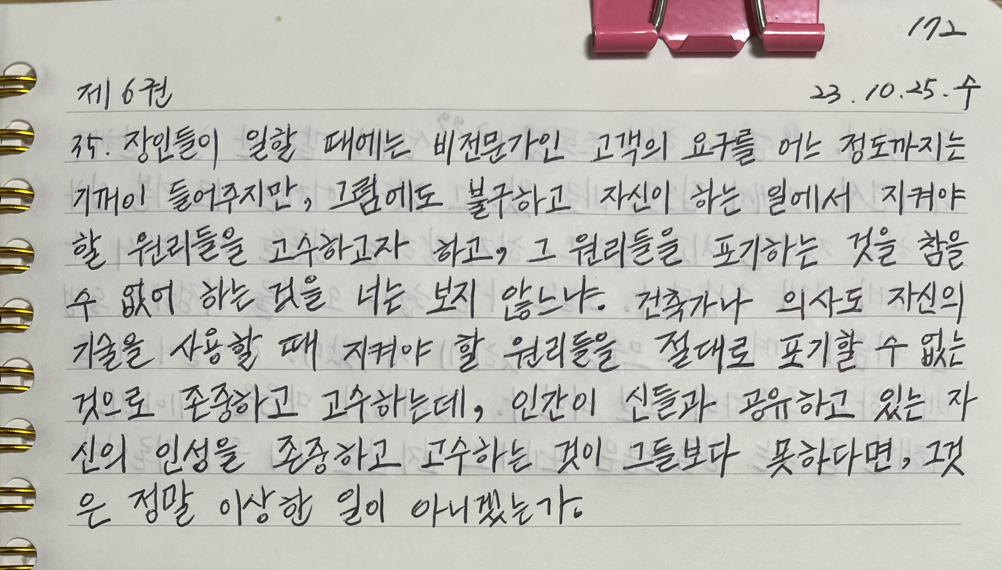 172
제 6권 23. 10. 25. 수
35. 장인들이 일할 때에는 비전문가인 고객의 요구를 어느 정도까지는
기꺼이 들어주지만, 그럼에도 불구하고 자신이 하는 일에서 지켜야
할 원리들을 고수하고자 하고, 그 원리들을 포기하는 것을 참을
수 없어 하는 것을 너는 보지 않느냐. 건축가나 의사도 자신의
기술을 사용할 때 지켜야 할 원리들을 절대로 포기할 수 없는
것으로 존중하고 고수하는데, 인간이 신들과 공유하고 있는 자
신의 인성을 존중하고 고수하는 것이 그들보다 못하다면, 그것
은 정말 이상한 일이 아니겠는가.